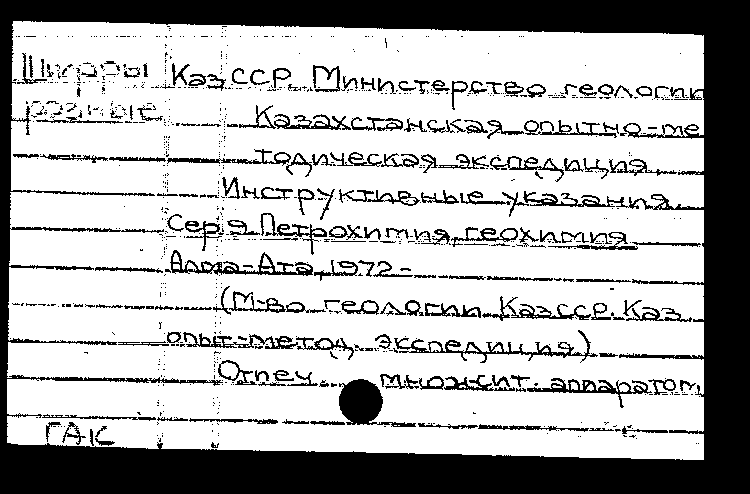 Шифры разные
КазССР. Министерство геологии
Казахстанская опытно-ме
тодическая экспедиция.
Инструктивные указания.
Серия Петрохимия, геохимия
Алма-Ата, 1972-
(М-во геологии КазССР. Каз.
опыт.-метод. экспедиция)
Отпеч. множит. аппаратом
ГАК